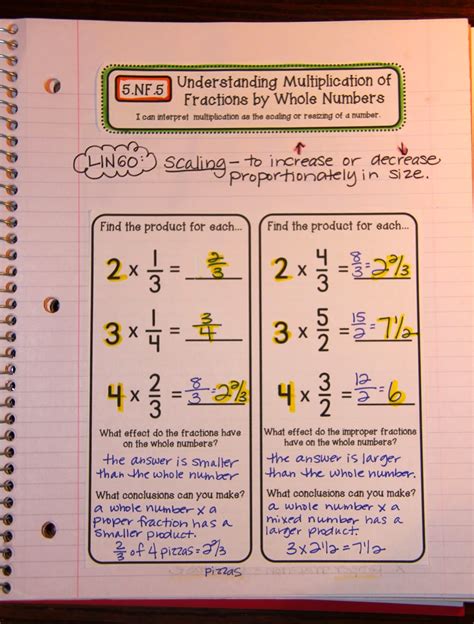 5.NF.5
Understanding Multiplication of
Fractions by Whole Numbers
I can interpret multiplication as the scaling or resizing of a number.
LINGO: Scaling – to increase or decrease
proportionately in size.
Find the product for each...
2 × 1/3 = 2/3
3 × 1/4 = 3/4
4 × 2/3 = 8/3 = 2 2/3
What effect do the fractions have
on the whole numbers?
the answer is smaller
than the whole number
What conclusions can you make?
a whole number x a
proper fraction has a
smaller product.
2/3 of 4 pizzas = 2 2/3
pizzas
Find the product for each...
2 × 4/3 = 8/3 = 2 2/3
3 × 5/2 = 15/2 = 7 1/2
4 × 3/2 = 12/2 = 6
What effect do the improper fractions
have on the whole numbers?
the answer is larger
than the whole number.
What conclusions can you make?
a whole number x a
mixed number has a
larger product.
3 x 2 1/2 = 7 1/2